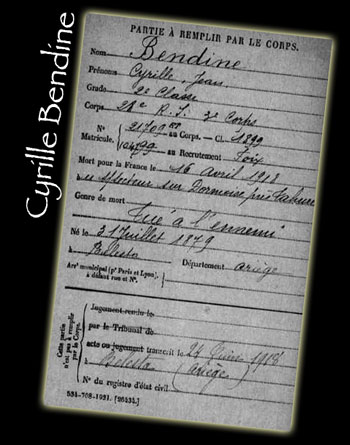 Cyrille Bendine
PARTIE À REMPLIR PAR LE CORPS.
Nom Bendine
Prénoms Cyrille, Jean
Grade 2e Classe
Corps 24e R. I. 3e Corps
N° 21709 au Corps. — Cl. 1899
Matricule. 799 au Recrutement Foix
Mort pour la France le 16 avril 1918
sur
Genre de mort Tué à l'ennemi
Né le 31 Juillet 1879
à Bélesta Département Ariège
Arrt municipal (pr Paris et Lyon),
à défaut rue et N°.
Cette partie
n'est pas à remplir
par le Corps.
Jugement rendu le
par le Tribunal de
acte ou jugement transcrit le 24 1918
à Belesta (Ariège)
N° du registre d'état civil
534-708-1921. [26434].